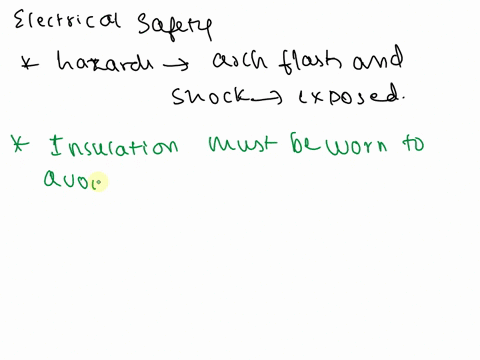 Electrical Safety
* hazards → arch flash and
shock → exposed.
* Insulation must be worn to
avoi